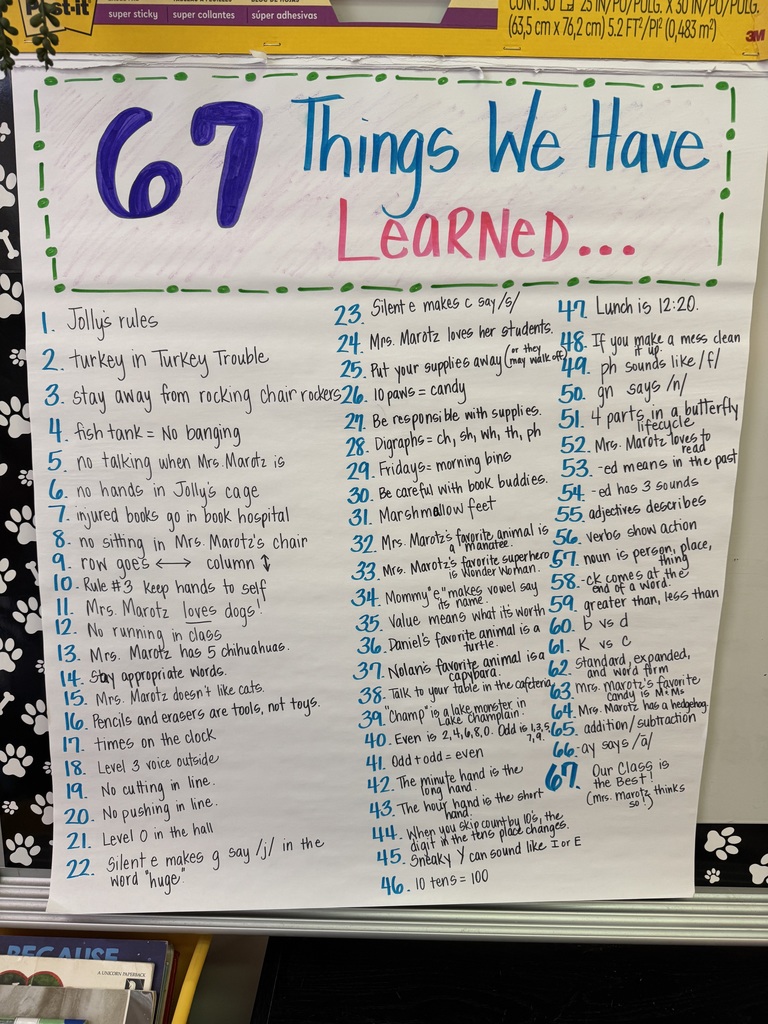 Post-it
super sticky
super collantes
súper adhesivas
CONT. 30 25 IN/PO/PULG. X 30 IN/PO/PULG.
(63,5 cm x 76,2 cm) 5.2 FT²/PI² (0,483 m²)
3M
67 Things We Have
Learned...
1. Jolly's rules
2. turkey in Turkey Trouble
3. stay away from rocking chair rockers
4. fish tank = No banging
5. no talking when Mrs. Marotz is
6. no hands in Jolly's cage
7. injured books go in book hospital
8. no sitting in Mrs. Marotz's chair
9. row goes ⟷ column ↕
10. Rule #3 keep hands to self
11. Mrs. Marotz loves dogs!
12. No running in class
13. Mrs. Marotz has 5 chihuahuas.
14. Say appropriate words.
15. Mrs. Marotz doesn't like cats.
16. Pencils and erasers are tools, not toys.
17. times on the clock
18. Level 3 voice outside
19. No cutting in line.
20. No pushing in line.
21. Level 0 in the hall
22. Silent e makes g say /j/ in the
word "huge"
23. Silent e makes c say /s/
24. Mrs. Marotz loves her students.
25. Put your supplies away (or they
may walk off)
26. 10 paws = candy
27. Be responsible with supplies.
28. Digraphs = ch, sh, wh, th, ph
29. Fridays = morning bins
30. Be careful with book buddies.
31. Marshmallow feet
32. Mrs. Marotz's favorite animal is
a manatee.
33. Mrs. Marotz's favorite superhero
is Wonder Woman.
34. Mommy "e" makes vowel say
its name.
35. Value means what its worth
36. Daniel's favorite animal is a
turtle.
37. Nolan's favorite animal is a
capybara.
38. Talk to your table in the cafeteria
39. "Champ" is a lake monster in
Lake Champlain.
40. Even is 2, 4, 6, 8, 0. Odd is 1, 3, 5,
7, 9.
41. Odd + odd = even
42. The minute hand is the
long hand.
43. The hour hand is the short
hand.
44. When you skip count by 10's, the
digit in the tens place changes.
45. Sneaky Y can sound like I or E
46. 10 tens = 100
47. Lunch is 12:20.
48. If you make a mess clean
it up.
49. ph sounds like /f/
50. gn says /n/
51. 4 parts in a butterfly
lifecycle
52. Mrs. Marotz loves to
read
53. -ed means in the past
54. -ed has 3 sounds
55. adjectives describes
56. verbs show action
57. noun is person, place,
thing
58. -ck comes at the
end of a word.
59. greater than, less than
60. b vs d
61. K vs c
62. standard, expanded,
and word form
63. Mrs. Marotz's favorite
candy is M&Ms
64. Mrs. Marotz has a hedgehog.
65. addition/subtraction
66. -ay says /ā/
67. Our Class is
the Best!
(mrs. marotz thinks
so!)
BECAUSE
A UNICORN PAPERBACK